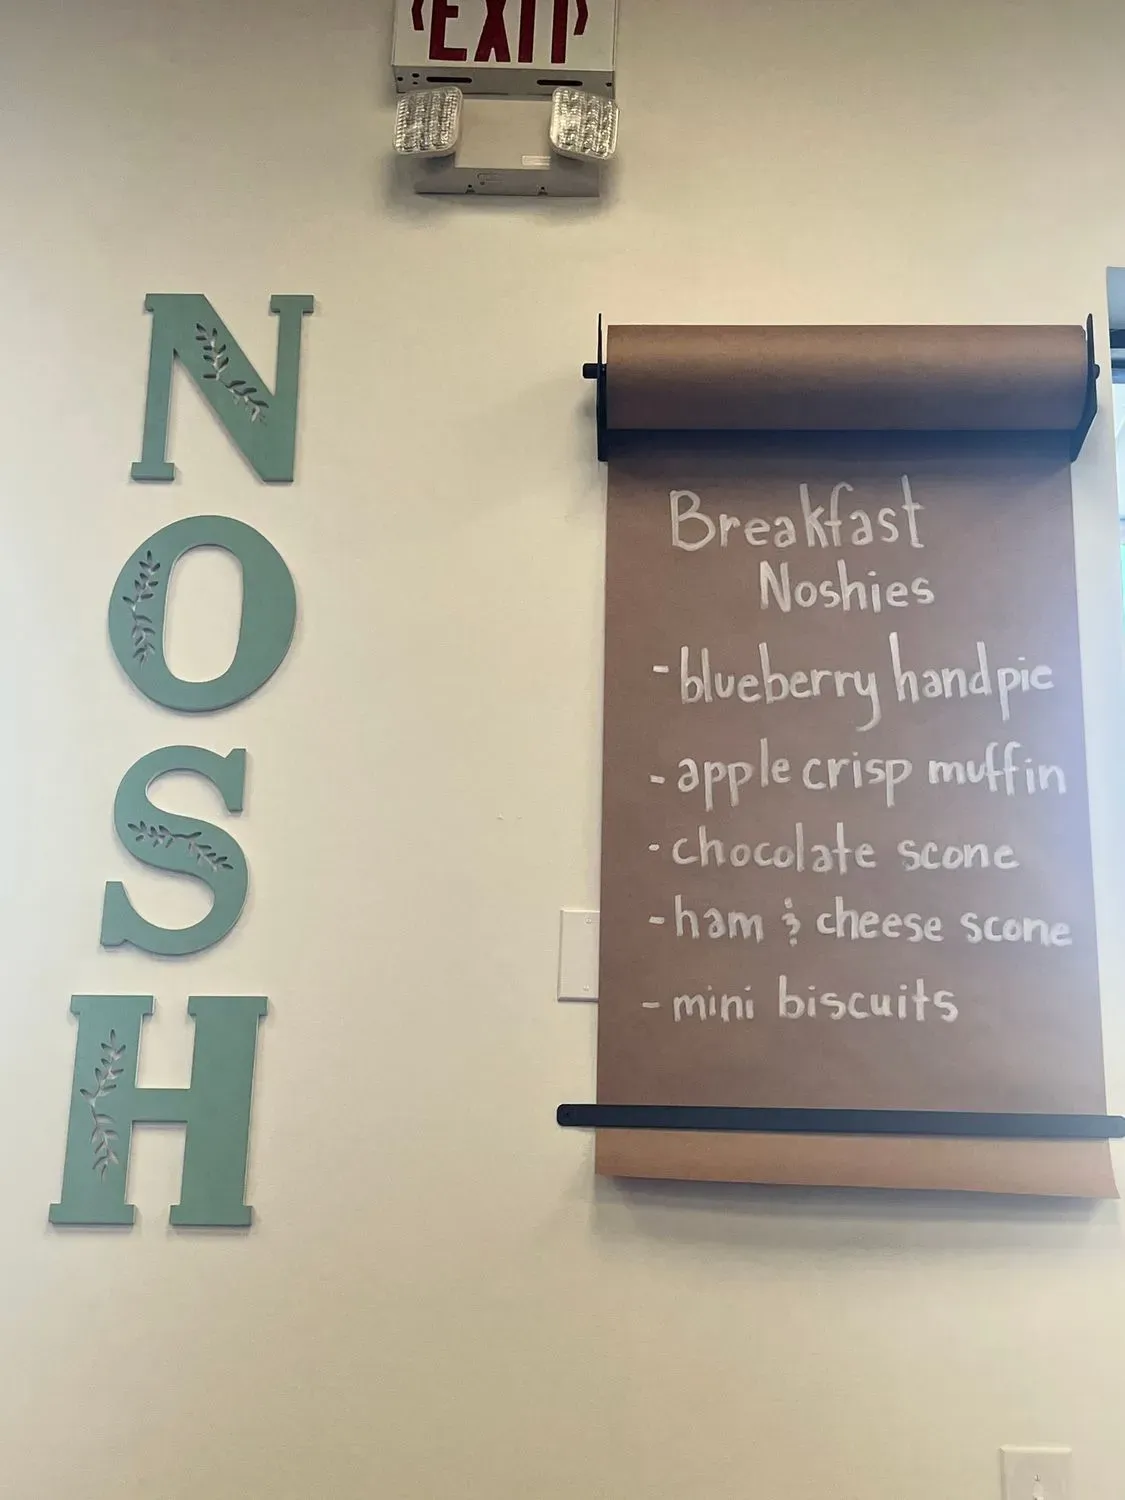 EXIT
NOSH
Breakfast
Noshies
- blueberry handpie
- apple crisp muffin
- chocolate scone
- ham & cheese scone
- mini biscuits